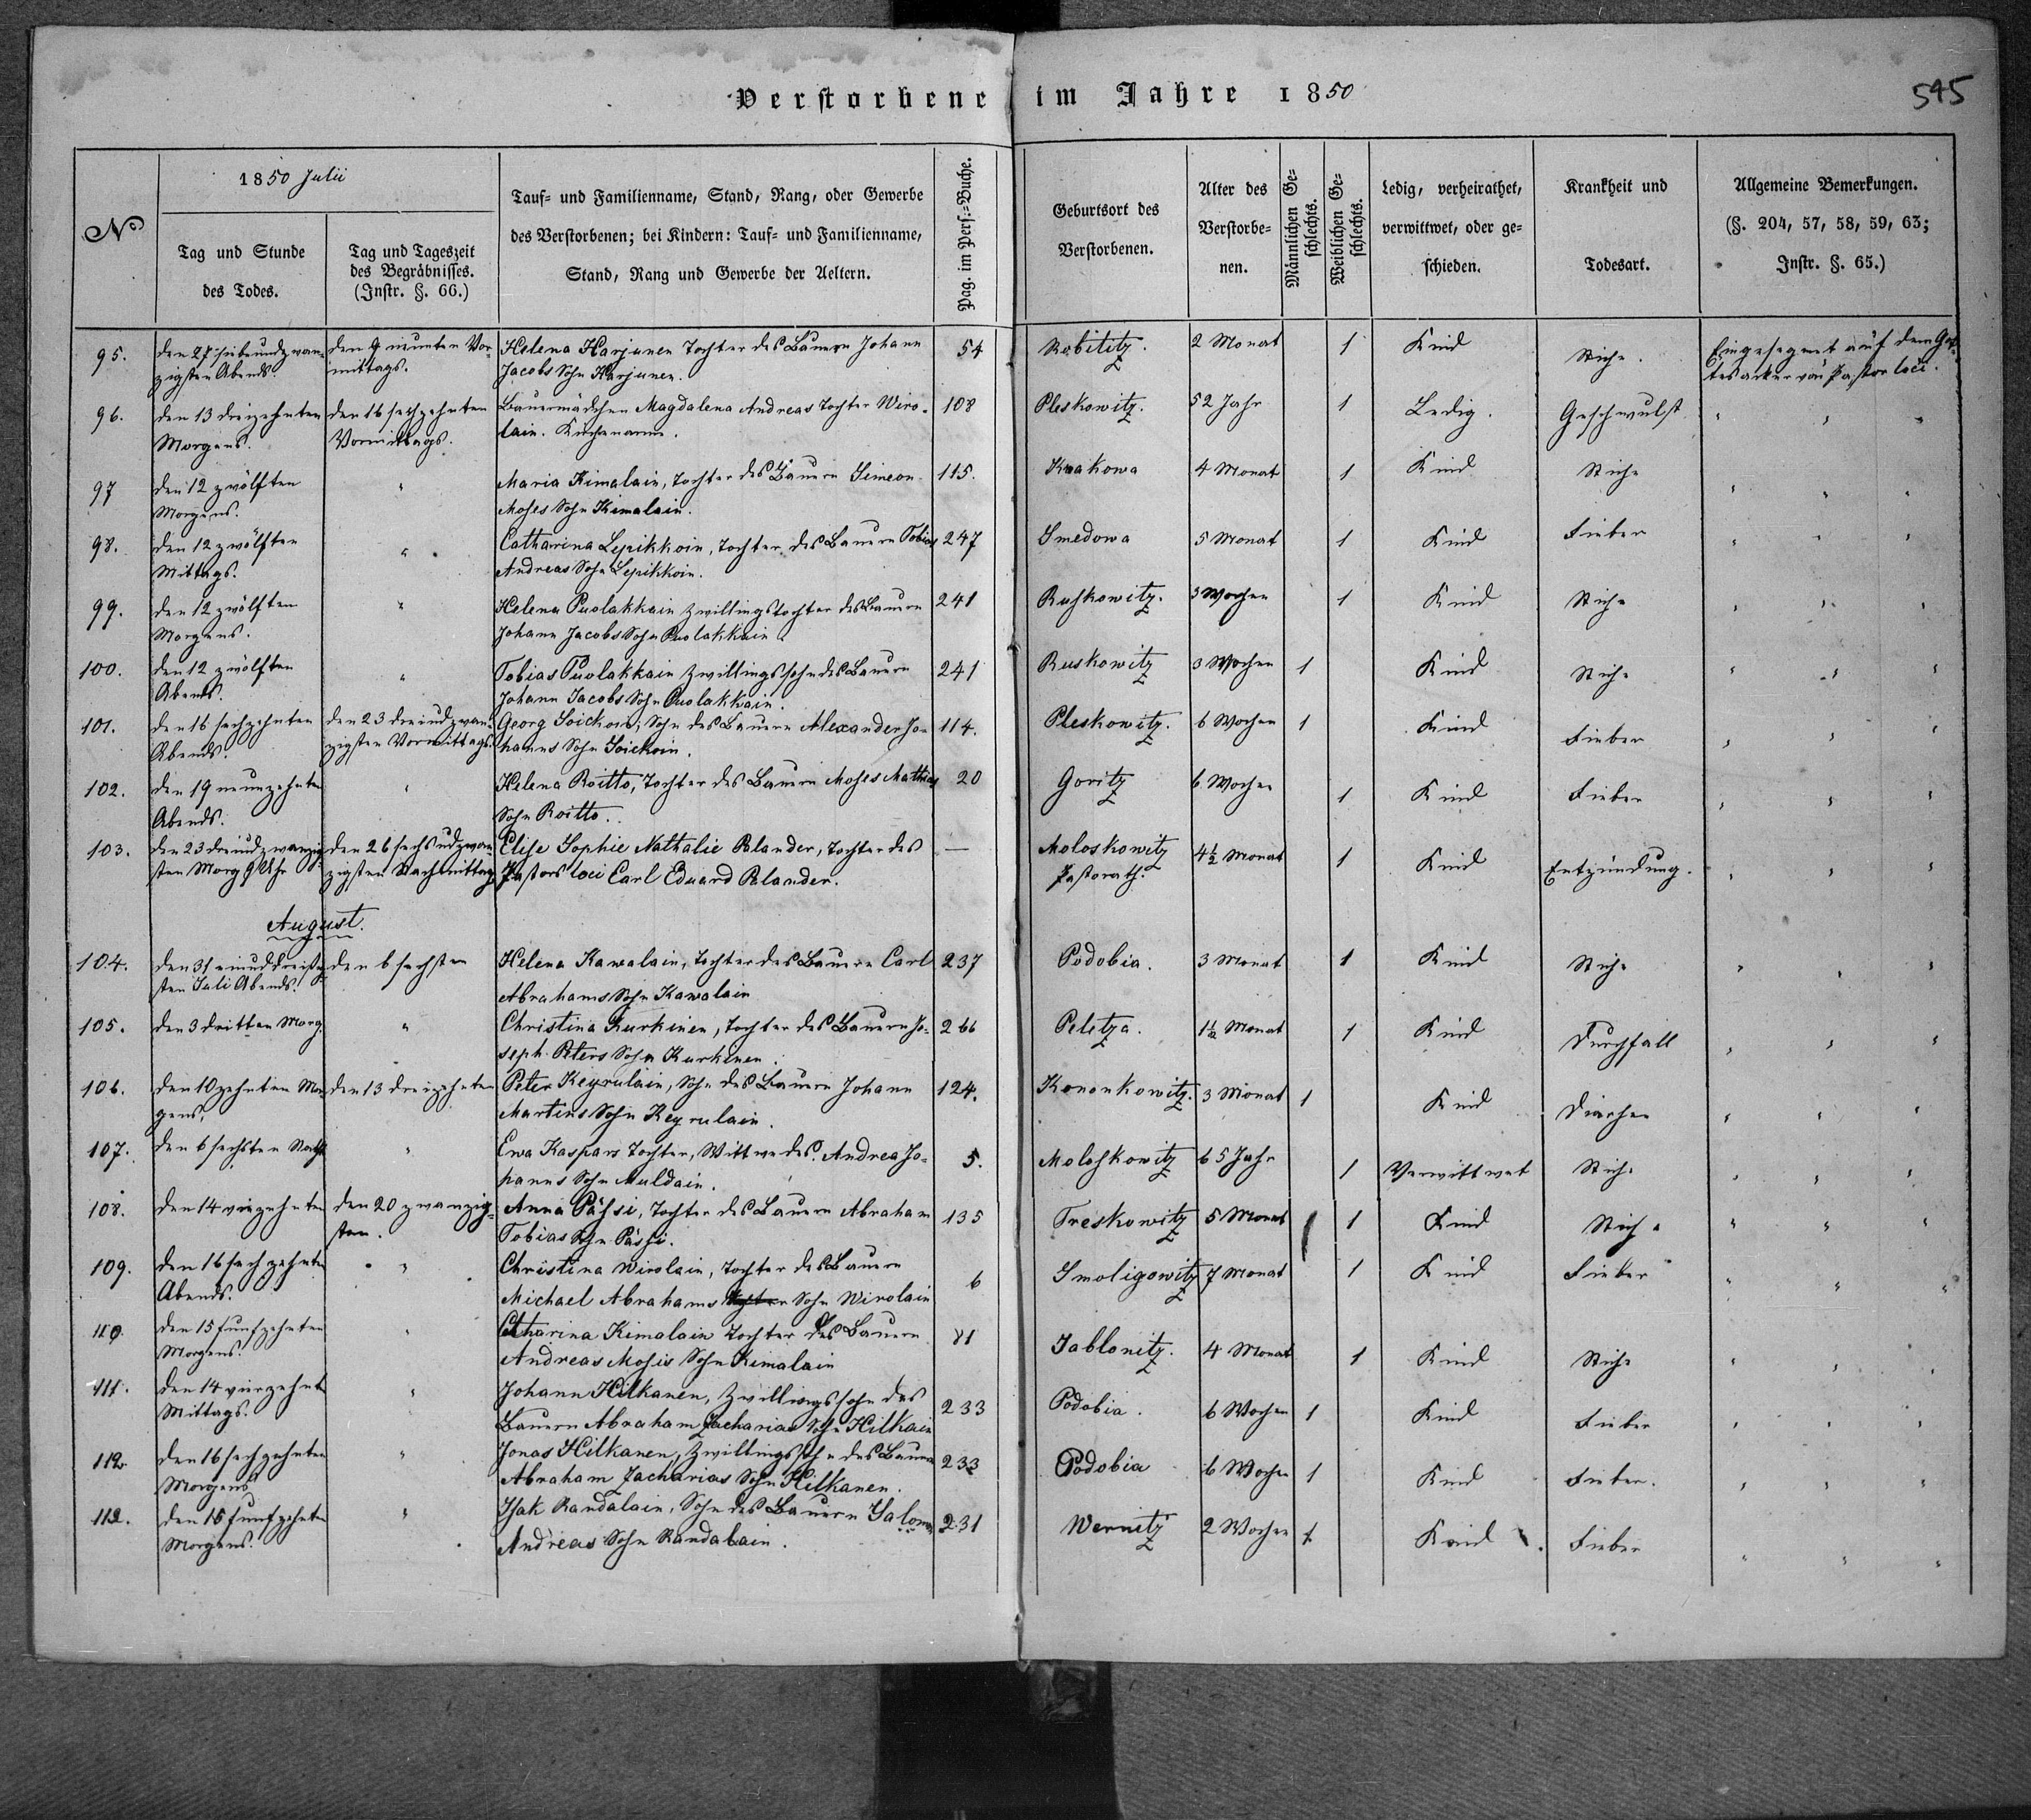 Verstorbene im Jahre 1850
545
N°
1850 Julii
Tag und Stunde des Todes.
Tag und Tageszeit des Begräbnisses. (Instr. §. 66.)
Tauf= und Familienname, Stand, Rang, oder Gewerbe
des Verstorbenen; bei Kindern: Tauf= und Familienname,
Stand, Rang und Gewerbe der Aeltern.
Pag. im Pers.=Buche.
Geburtsort des Verstorbenen.
Alter des Verstorbe=nen.
Männlichen Ge=schlechts.
Weiblichen Ge=schlechts.
Ledig, verheirathet, verwittwet, oder ge=schieden.
Krankheit und Todesart.
Allgemeine Bemerkungen.
(§. 204, 57, 58, 59, 63; Instr. §. 65.)
95. den 27 siebenundzwan= den 9 neunten Vor= Helena Harjunen Tochter des Bauern Johann 54 Robititz. 2 Monat 1 Kind Stiche. Eingesegnet auf dem Got=
zigsten Abends. mittags. Jacobs Sohn Harjunen. tesacker von Pastor loci.
96. den 13 dreizehnten den 16 sechzehnten Bauermädchen Magdalena Andreas Tochter Wiro= 108 Pleskowitz. 52 Jahr 1 Ledig. Geschwulst " " "
Morgens. Vormittags. lain.
97 den 12 zwölften " Maria Kimalain, Tochter des Bauern Simeon 115. Krakowa 4 Monat 1 Kind Stiche " " "
Morgens. Moses Sohn Kimalain.
98. den 12 zwölften " Catharina Lepikkoin, Tochter des Bauern Tobias 247 Smedowa 5 Monat 1 Kind Fieber " " "
Mittags. Andreas Sohn Lepikkoin.
99. den 12 zwölften " Helena Puolakkain Zwillingstochter des Bauern 241 Ruskowitz. 3 Wochen 1 Kind Stiche " " "
Morgens. Johann Jacobs Sohn Puolakkain
100. den 12 zwölften " Tobias Puolakkain Zwillingssohn des Bauern 241 Ruskowitz 3 Wochen 1 Kind Stiche " " "
Abends. Johann Jacobs Sohn Puolakkain.
101. den 16 sechzehnten den 23 dreiundzwan= Georg Soickoin, Sohn des Bauern Alexander Jo= 114. Pleskowitz. 6 Wochen 1 Kind Fieber " " "
Abends. zigsten Vormittags. hanns Sohn Soickoin.
102. den 19 neunzehnten " Helena Roitto, Tochter des Bauern Moses Mathias 20 Goritz 6 Wochen 1 Kind Fieber " " "
Abends. Sohn Roitto.
103. den 23 dreiundzwanzig den 26 sechsundzwan Elise Sophie Nathalie Blander, Tochter des — Moloskowitz 4½ Monat 1 Kind Entzündung. " " "
sten Morg 9 Uhr zigsten Nachmittag Pastors loci Carl Eduard Blander. Pastorath.
August.
104. den 31 einunddreißig den 6 sechsten Helena Kawalain, Tochter des Bauern Carl 237 Podobia. 3 Monat 1 Kind Stiche " " "
sten Juli Abends. Abrahams Sohn Kawalain
105. den 3 dritten Morg. " Christina Kurkinen, Tochter des Bauern Jo= 266 Peletza. 1½ Monat 1 Kind Durchfall " " "
seph Peters Sohn Kurkinen.
106. den 10 zehnten Mor den 13 dreizehnten Peter Keyrulain, Sohn des Bauern Johann 124. Kononkowitz. 3 Monat 1 Kind " " "
gens. Martins Sohn Keyrulain.
107. den 6 sechsten " Ewa Kaspars Tochter, Wittwe des Andrea Jo= 5. Moloskowitz 65 Jahr 1 Verwittwet Stiche " " "
hanns Sohn Muldain.
108. den 14 vierzehnten den 20 zwanzig= Anna Pässi, Tochter des Bauern Abraham 135 Treskowitz 5 Monat 1 Kind Stiche " " "
sten. Tobias Sohn Pässi.
109. den 16 sechzehnten " Christina Wirolain, Tochter des Bauern 6 Smoligowitz 7 Monat 1 Kind Fieber " " "
Abends. Michael Abrahams Sohn Wirolain
110. den 15 funfzehnten " Catharina Kimalain Tochter des Bauern 81 Jablonitz. 4 Monat 1 Kind Stiche " " "
Morgens. Andreas Mosis Sohn Kimalain
111. den 14 vierzehnte " Johann Hilkanen, Zwillingssohn des 233 Podobia. 6 Wochen 1 Kind Fieber " " "
Mittags. Bauern Abraham Zacharias Sohn Hilkain
112. den 16 sechzehnten " Jonas Hilkanen, Zwillingssohn des Bauern 233 Podobia 6 Wochen 1 Kind Fieber. " " "
Morgens Abraham Zacharias Sohn Hilkanen.
112. den 15 funfzehnten " Isak Randalain, Sohn des Bauern Salomo 231 Wernitz 2 Wochen 1 Kind Fieber " " "
Morgens. Andreas Sohn Randalain.